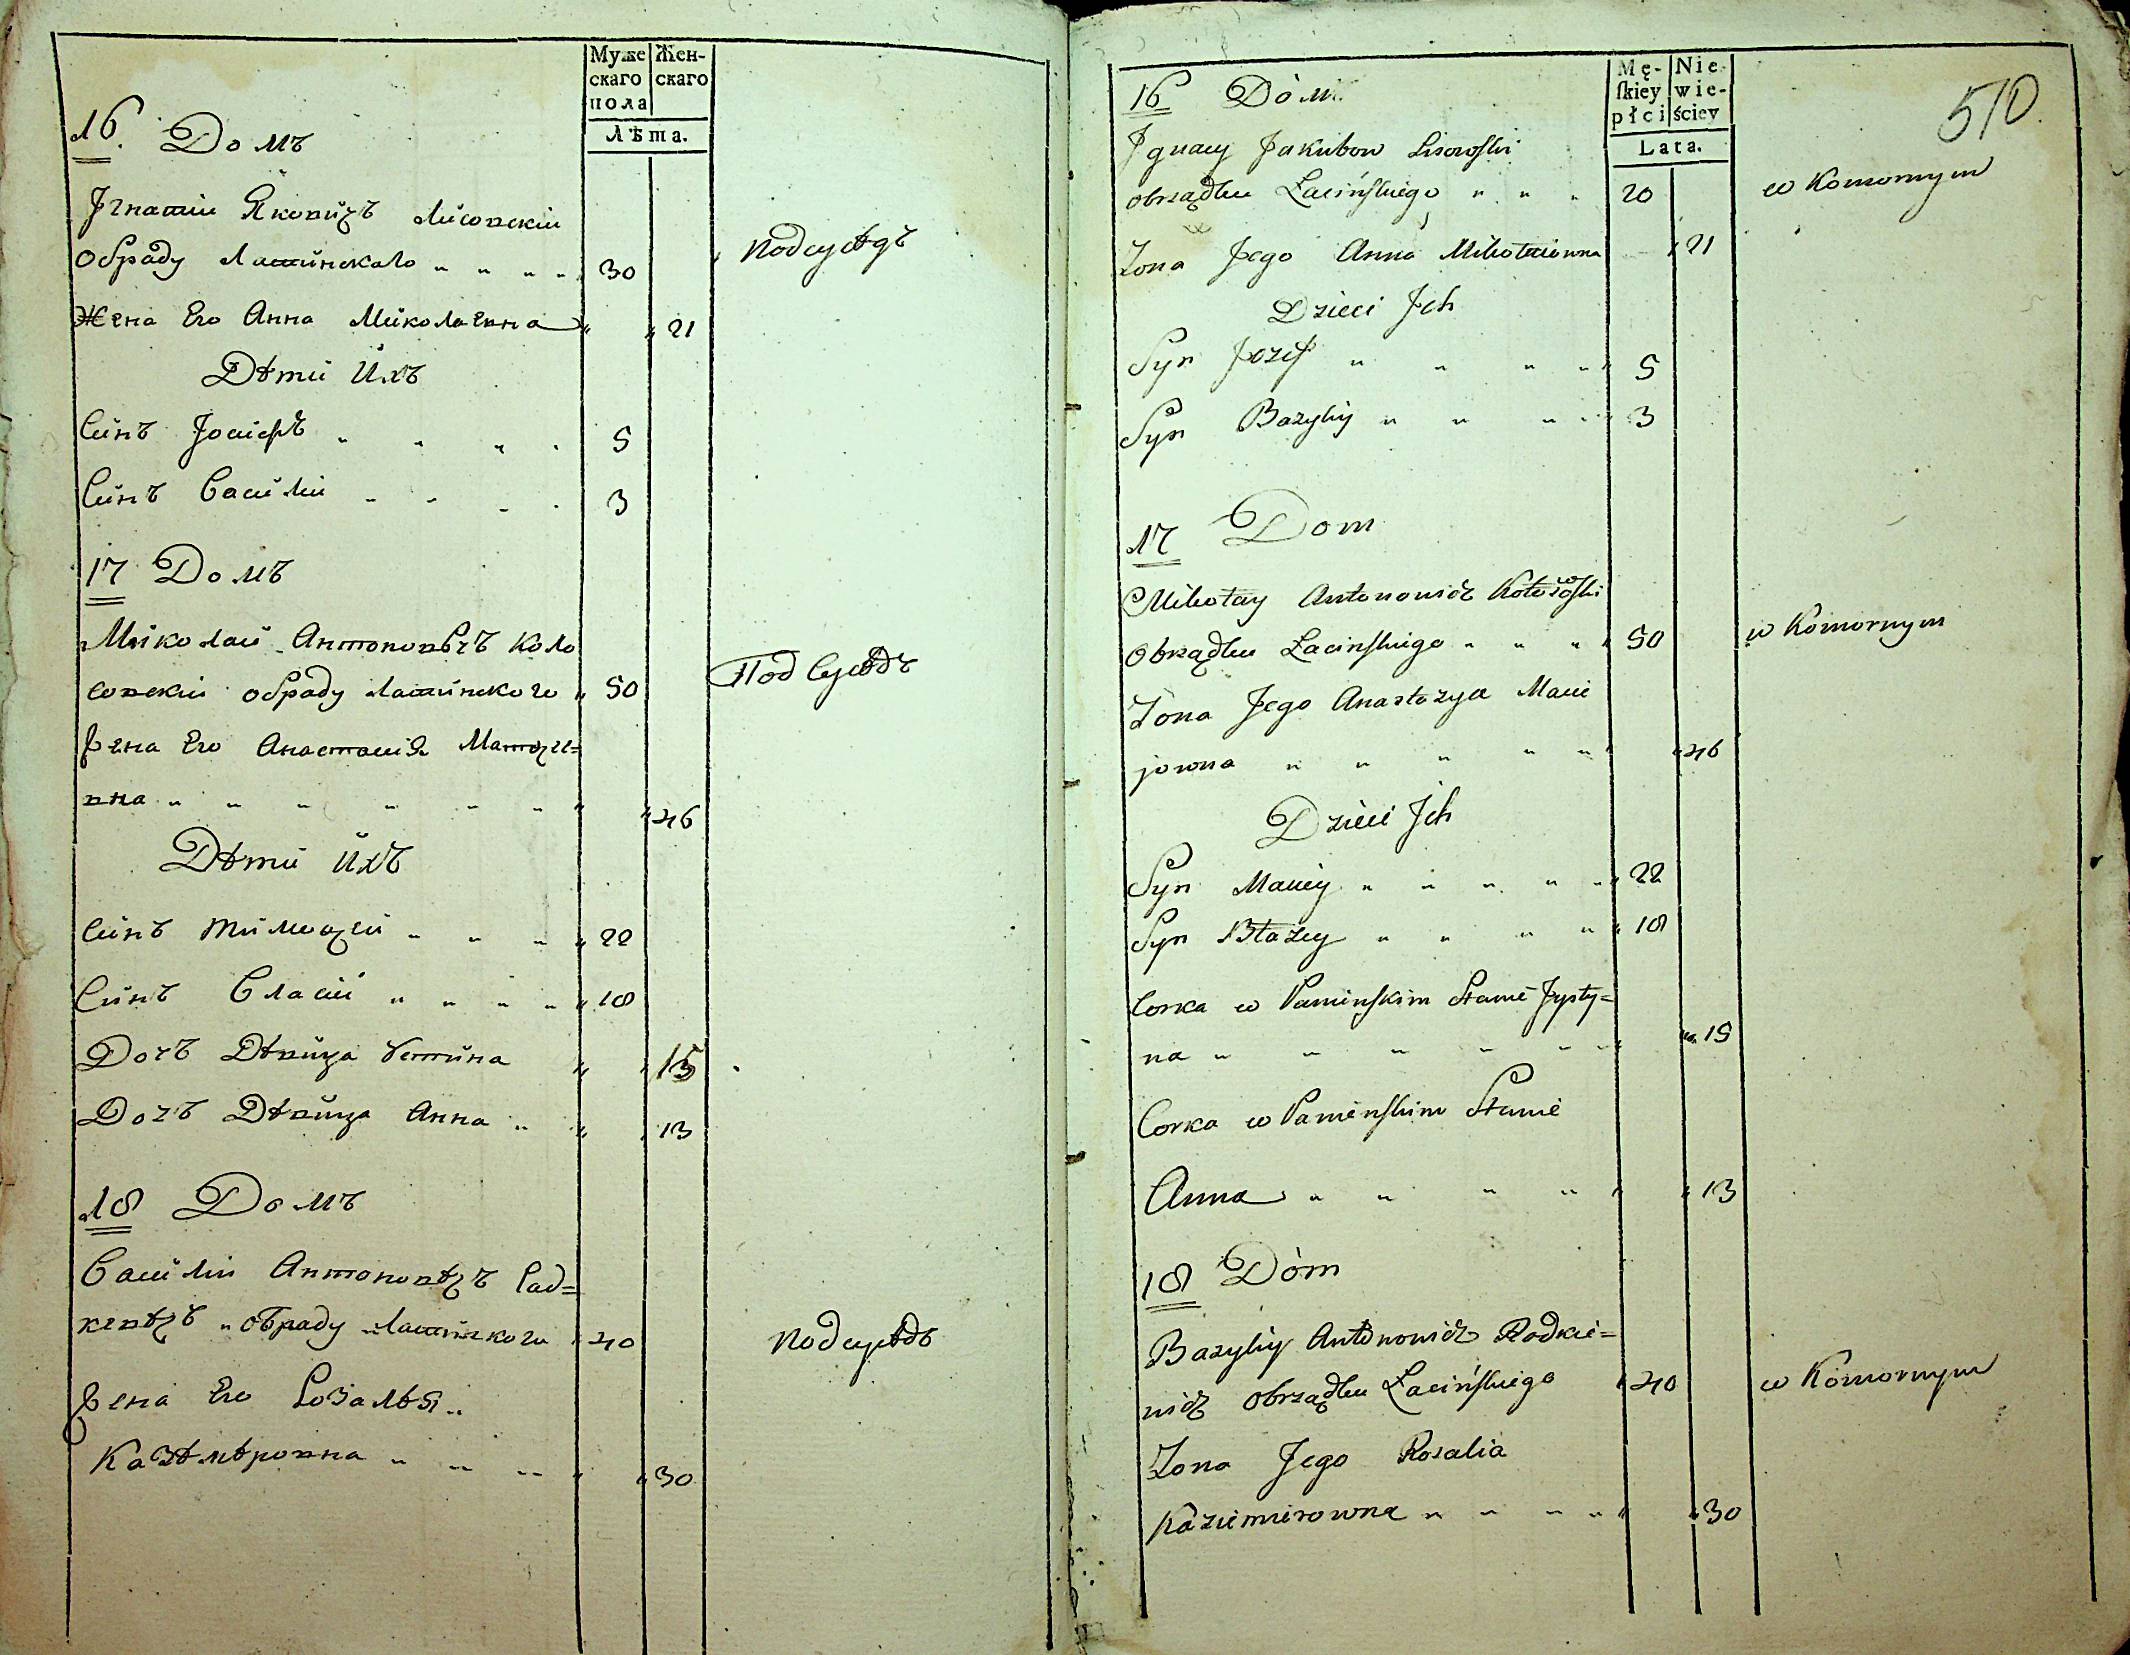 Муже
скаго
пола
Жен-
скаго
Лѣта.
16. Домъ
Игнатіи Яковичъ Лисовскіи
обраду Латинскаго 30 Подсусѣдъ
Жена Его Анна Миколаевна 21
Дѣти Ихъ
Синъ Іосифъ 5
Синъ Василіи 3
17 Домъ
Миколаи Антоновичъ Коло
совскіи обраду латинского 50 Подсусѣдъ
Жена Его Анастасия
вна 46
Дѣти Ихъ
Синъ 22
Синъ Власіи 18
Дочъ Дѣвица Устина 15
Дочъ Дѣвица Анна 13
18 Домъ
Василіи Антоновѣчъ Рад=
кевѣчъ обраду Латинского 40 Подсусѣдъ
Жена Его Розалья
Казѣмѣровна 30
Mę-
ſkiey
płci
Nie-
wie-
ściey
Lata.
510
16 Dóm
Jgnacy Jakubow Lisowski
obrządku Łacińskiego 20 w Komornym
Zona Jego Anna Mikołaiowna 21
Dzieci Jch
Syn Jozef 5
Syn Bazyly 3
17 Dom
Mikołay Antonowicz Kołosowski
Obrządku Łacinskiego 50 w Komornym
Zona Jego Anastazya Macie
jowna 46
Dzieci Jch
Syn Maciey 22
Syn Błażey 18
Corka w Panienskim Stanie Justy=
na 15
Corka w Panienskim Stanie
Anna 13
18 Dóm
Bazyly Antonowicz Radkie=
wicz Obrządku Łacińskiego 40 w Komornym
Zona Jego Rosalia
Kazimierowna 30